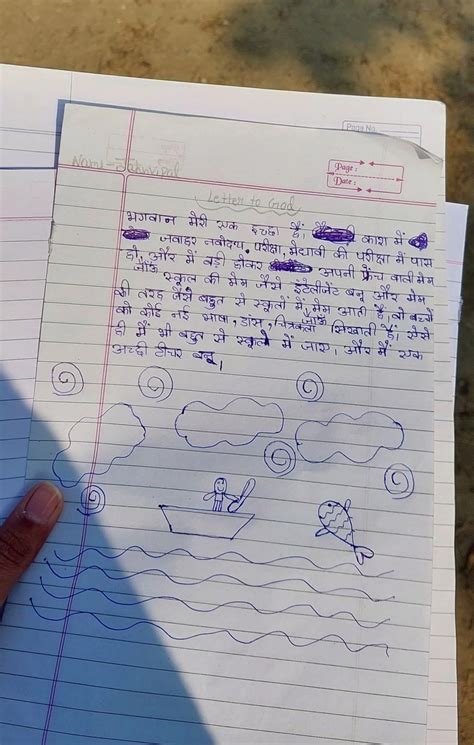 Page No.
Page :
Date :
Name -
Letter to God
भगवान मेरी एक इच्छा है। काश में
जवाहर नवोदय, परीक्षा, मेधावी की परीक्षा में पास
हो, और में बड़ी होकर अपनी फ्रेंच वाली मेम
स्कूल की मेम जैसे इंटेलीजेंट बनू और मेम
की तरह जैसे बहुत से स्कूलों में मेम आती है, वो बच्चों
को कोई नई भाषा, डांस, चित्रकला सिखाती है। ऐसे
ही मैं भी बहुत से स्कूलों में जाऊ। और मैं एक
अच्छी टीचर बनू।